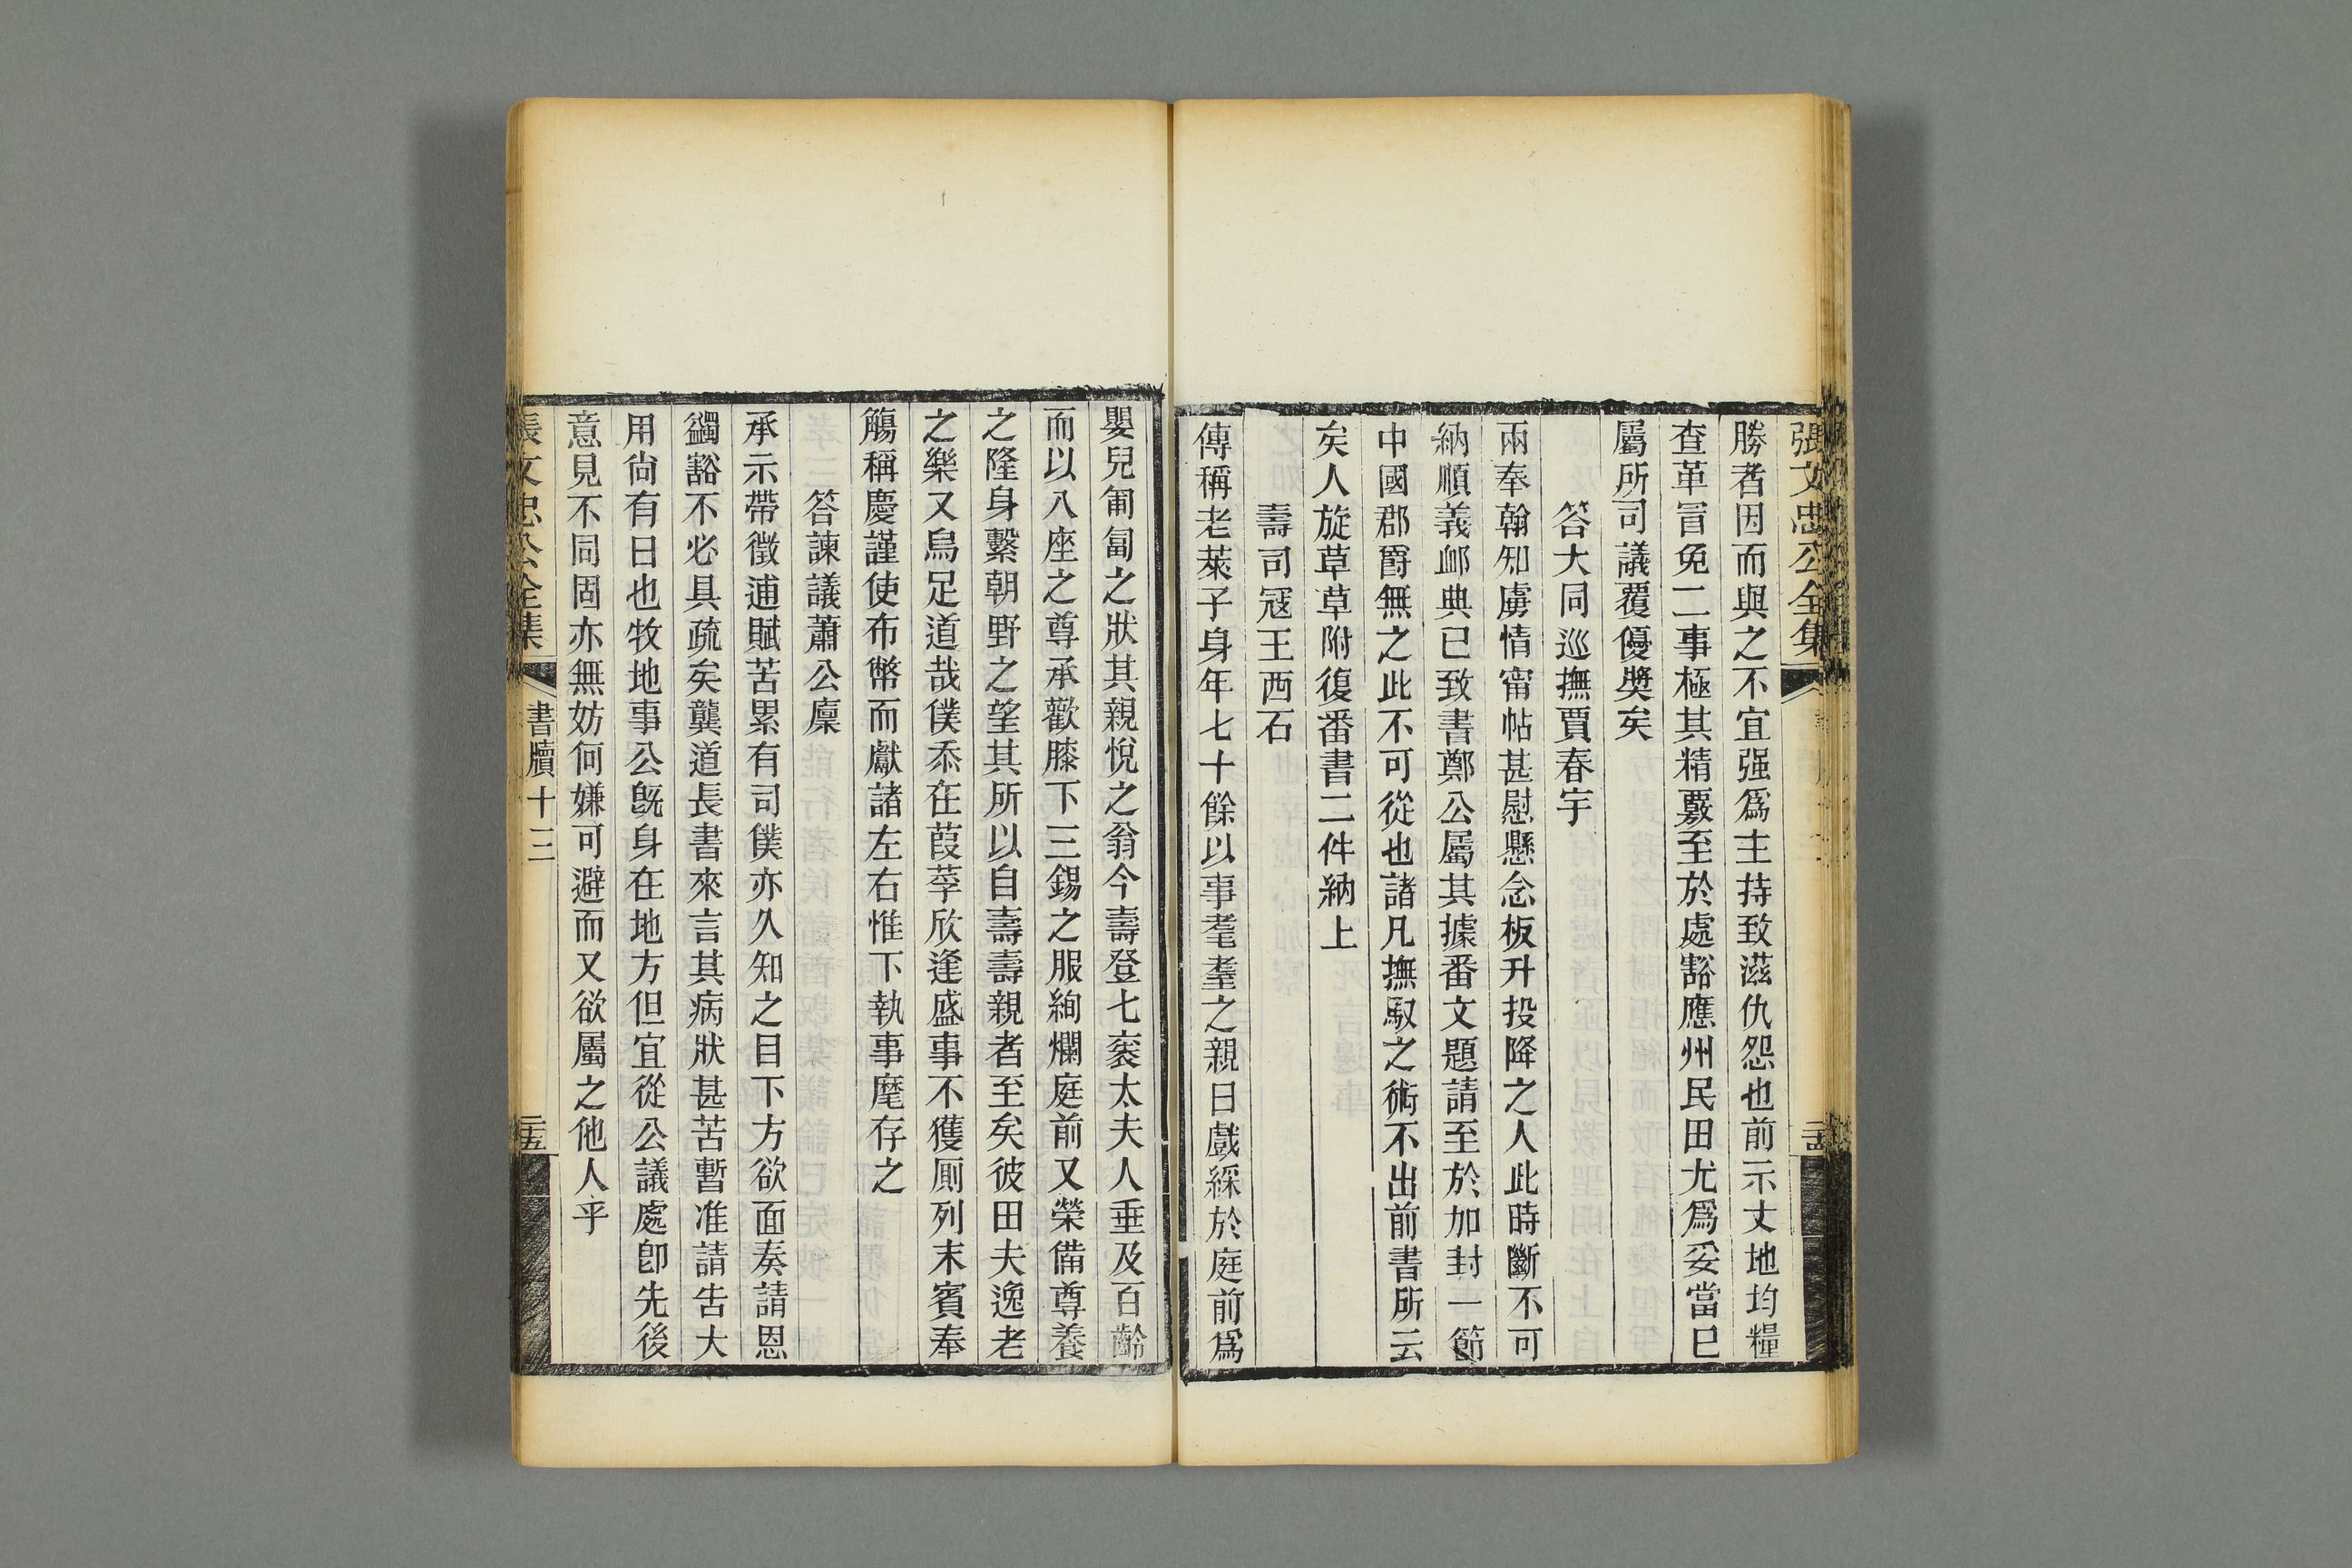 張文忠公全集
勝者因而與之不宜强爲主持致滋仇怨也前示丈地均糧
查革冒免二事極其精覈至於處豁應州民田尤爲妥當已
屬所司議覆優奬矣
答大同巡撫賈春宇
兩奉翰知虜情甯帖甚慰懸念板升投降之人此時斷不可
納順義卹典已致書鄭公屬其據番文題請至於加封一節
中國郡爵無之此不可從也諸凡撫馭之術不出前書所云
矣人旋草草附復番書二件納上
壽司冦王西石
傳稱老萊子身年七十餘以事耄耋之親日戲綵於庭前爲
嬰兒匍匐之狀其親悅之翁今壽登七袠太夫人垂及百齡
而以八座之尊承歡膝下三錫之服絢爛庭前又榮備尊養
之隆身繫朝野之望其所以自壽壽親者至矣彼田夫逸老
之樂又烏足道哉僕忝在葭莩欣逢盛事不獲厠列末賓奉
觴稱慶謹使布幣而獻諸左右惟下執事麾存之
答諫議蕭公廩
承示帶徵逋賦苦累有司僕亦久知之目下方欲面奏請恩
蠲豁不必具疏矣龔道長書來言其病狀甚苦暫准請告大
用尙有日也牧地事公旣身在地方但宜從公議處卽先後
意見不同固亦無妨何嫌可避而又欲屬之他人乎
張文忠公全集
書牘十三
二十五